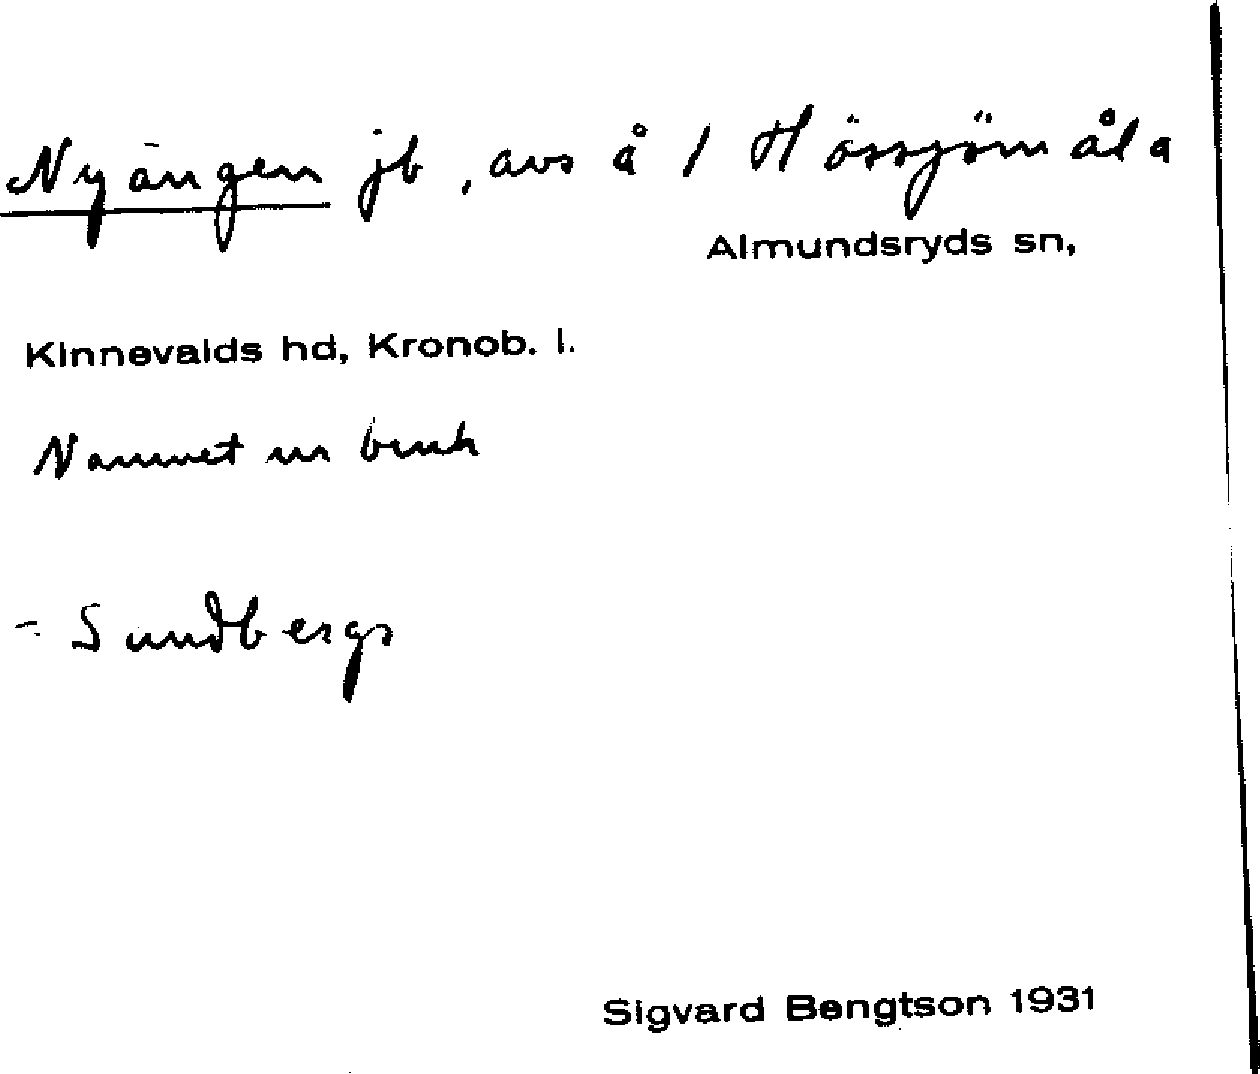 Nyängen jb, avs å 1 Hössjömåla
Almundsryds sn,
Kinnevalds hd, Kronob. l.
Namnet ur bruk
= Sundbergs
Sigvard Bengtson 1931